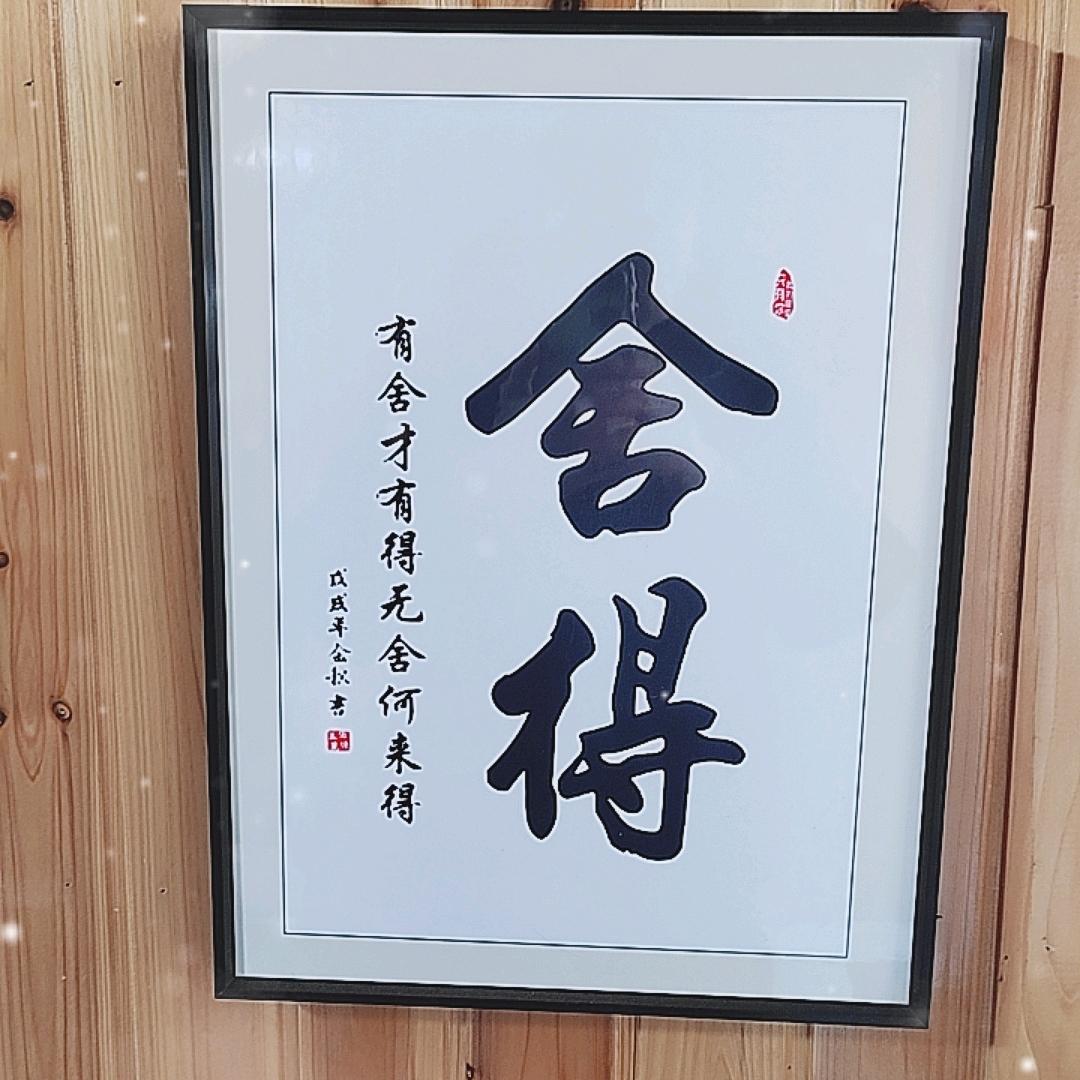 舍得
有舍才有得无舍何来得
戊戌年
书